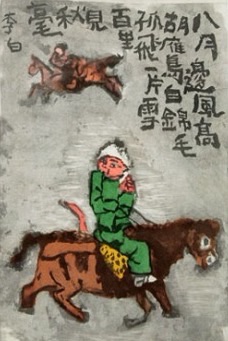 八月邊風高
胡鷹白錦毛
孤飛一片雪
百里
見
秋
毫
李白